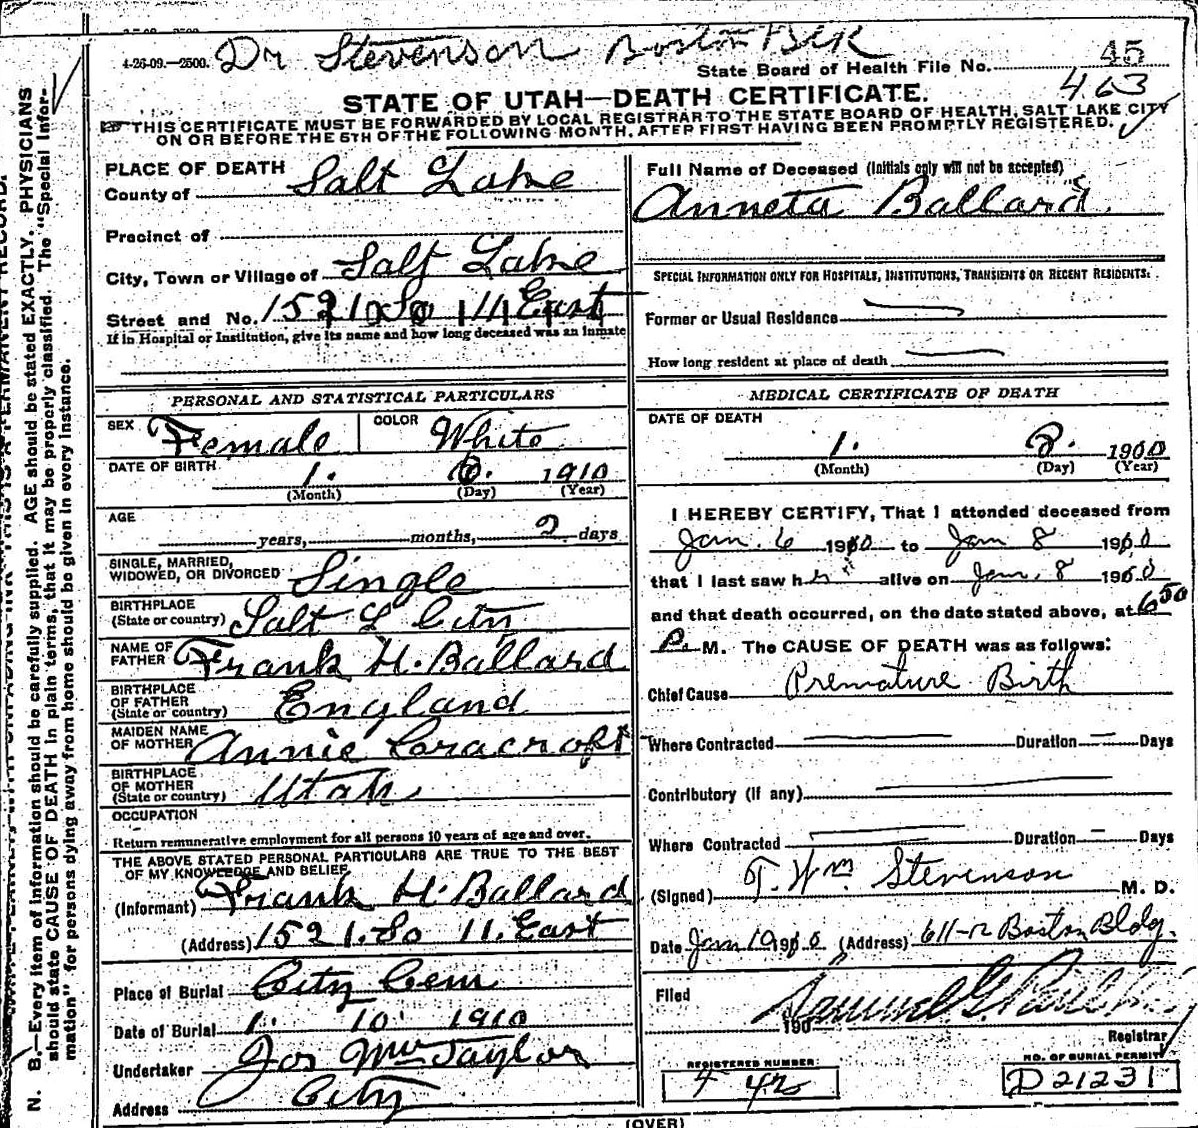 4-26-09.—2500. Dr Stevenson Boston Blk
State Board of Health File No. 45
463
STATE OF UTAH—DEATH CERTIFICATE.
THIS CERTIFICATE MUST BE FORWARDED BY LOCAL REGISTRAR TO THE STATE BOARD OF HEALTH, SALT LAKE CITY
ON OR BEFORE THE 5TH OF THE FOLLOWING MONTH, AFTER FIRST HAVING BEEN PROMPTLY REGISTERED.
PLACE OF DEATH
County of Salt Lake
Precinct of
City, Town or Village of Salt Lake
Street and No. 1521 So 11 East
If in Hospital or Institution, give its name and how long deceased was an inmate
PERSONAL AND STATISTICAL PARTICULARS
SEX Female COLOR White
DATE OF BIRTH 1. 6. 1910
(Month) (Day) (Year)
AGE years, months, 2 days
SINGLE, MARRIED,
WIDOWED, OR DIVORCED Single
BIRTHPLACE
(State or country) Salt L City
NAME OF
FATHER Frank H. Ballard
BIRTHPLACE
OF FATHER
(State or country) England
MAIDEN NAME
OF MOTHER Annie Cracroft
BIRTHPLACE
OF MOTHER
(State or country) Utah
OCCUPATION
Return remunerative employment for all persons 10 years of age and over.
THE ABOVE STATED PERSONAL PARTICULARS ARE TRUE TO THE BEST
OF MY KNOWLEDGE AND BELIEF
(Informant) Frank H. Ballard
(Address) 1521. So 11. East
Place of Burial City Cem
Date of Burial 1. 10 1910
Undertaker Jos Wm Taylor
Address City
Full Name of Deceased (Initials only will not be accepted)
Anneta Ballard
SPECIAL INFORMATION ONLY FOR HOSPITALS, INSTITUTIONS, TRANSIENTS OR RECENT RESIDENTS:
Former or Usual Residence
How long resident at place of death
MEDICAL CERTIFICATE OF DEATH
DATE OF DEATH
1. 8. 1910
(Month) (Day) (Year)
I HEREBY CERTIFY, That I attended deceased from
Jan. 6 1910 to Jan 8 1910
that I last saw her alive on Jan. 8 1910
and that death occurred, on the date stated above, at 6 50
P. M. The CAUSE OF DEATH was as follows:
Chief Cause Premature Birth
Where Contracted — Duration — Days
Contributory (if any)
Where Contracted — Duration — Days
(Signed) T. Wm. Stevenson M. D.
Date Jan 10 1910 (Address) 611-12 Boston Bldg.
Filed 190
Registrar
REGISTERED NUMBER: 42
NO. OF BURIAL PERMIT
D 21231
(OVER)
N. B.—Every item of information should be carefully supplied. AGE should be stated EXACTLY. PHYSICIANS
should state CAUSE OF DEATH in plain terms, that it may be properly classified. The "Special Infor-
mation" for persons dying away from home should be given in every instance.